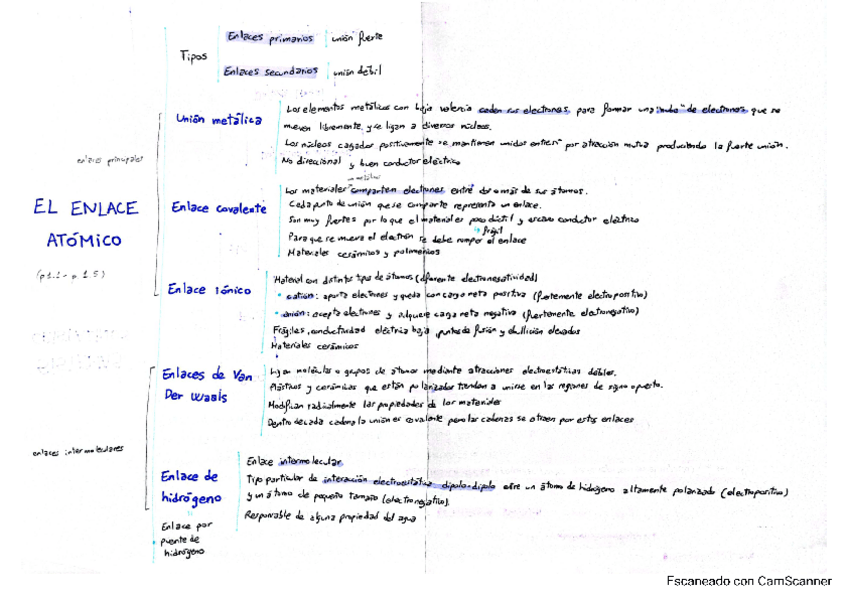 Tipos
Enlaces primarios unión fuerte
Enlaces secundarios unión débil
enlaces principales
EL ENLACE
ATÓMICO
(p 1.1 - p. 1.5)
Unión metálica
Los elementos metálicos con baja valencia ceden sus electrones, para formar una "nube" de electrones que se
mueven libremente, y se ligan a diversos núcleos.
Los núcleos cagados positivamente se mantienen unidos entre sí por atracción mutua produciendo la fuerte unión.
No direccional y buen conductor eléctrico
Enlace covalente
Los materiales comparten electrones entre dos o más de sus átomos.
Cada punto de unión que se comparte representa un enlace.
Son muy fuertes por lo que el material es poco dúctil y escaso conductor eléctrico
frágil
Para que se mueva el electrón se debe romper el enlace
Materiales cerámicos y polímeros
Enlace iónico
Material con distintos tipos de átomos (diferente electronegatividad)
• catión: aporta electrones y queda con carga neta positiva (fuertemente electropositivo)
• anión: acepta electrones y adquiere carga neta negativa (fuertemente electronegativo)
Frágiles, conductividad eléctrica baja, puntos de fusión y ebullición elevados
Materiales cerámicos
enlaces intermoleculares
Enlaces de Van
Der Waals
Ligan moléculas o grupos de átomos mediante atracciones electrostáticas débiles.
Plásticos y cerámicas que están polarizados tienden a unirse en las regiones de signo opuesto.
Modifican radicalmente las propiedades de los materiales
Dentro de cada cadena la unión es covalente pero las cadenas se atraen por estos enlaces
Enlace de
hidrógeno
Enlace por
puente de
hidrógeno
Enlace intermolecular
Tipo particular de interacción electrostática dipolo-dipolo entre un átomo de hidrógeno altamente polarizado (electropositivo)
y un átomo de pequeño tamaño (electronegativo).
Responsable de alguna propiedad del agua
Escaneado con CamScanner